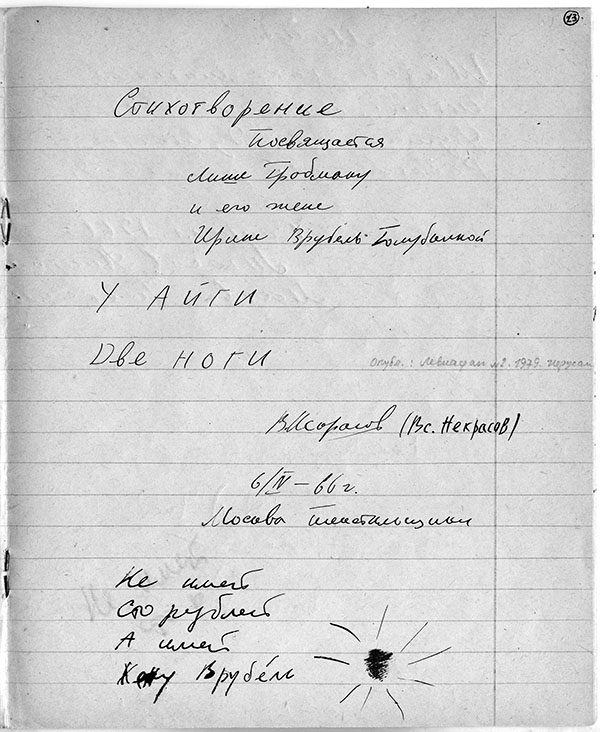 13.
Стихотворение
Посвящается
Мише Гробману
и его жене
Ирине Врубель Голубкиной
У АЙГИ
Две НОГИ
Опубл.: Левиафан №2. 1979. Иерусал
ВНекрасов (Вс. Некрасов)
6/IV – 66 г.
Москва Текстильщики
Не имей
Сто рублей
А имей
Жену Врубе́ль